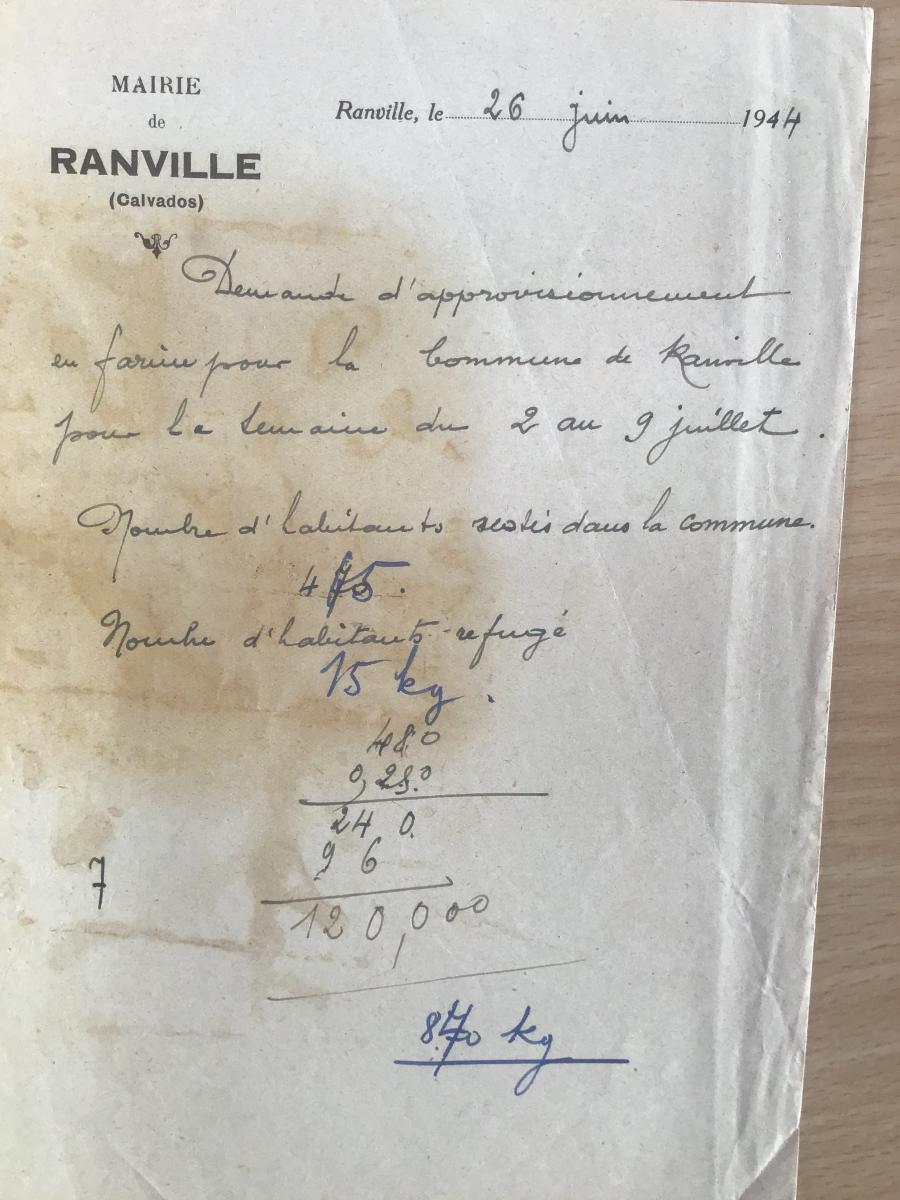 MAIRIE
de
RANVILLE
(Calvados)
Ranville, le 26 juin 1944
Demande d'approvisionnement
en farine pour la Commune de Ranville
pour la semaine du 2 au 9 juillet.
Nombre d'habitants restés dans la commune.
475.
Nombre d'habitants refugé
15 kg.
480
0,250
24 0
9 6
120,000
7
870 kg